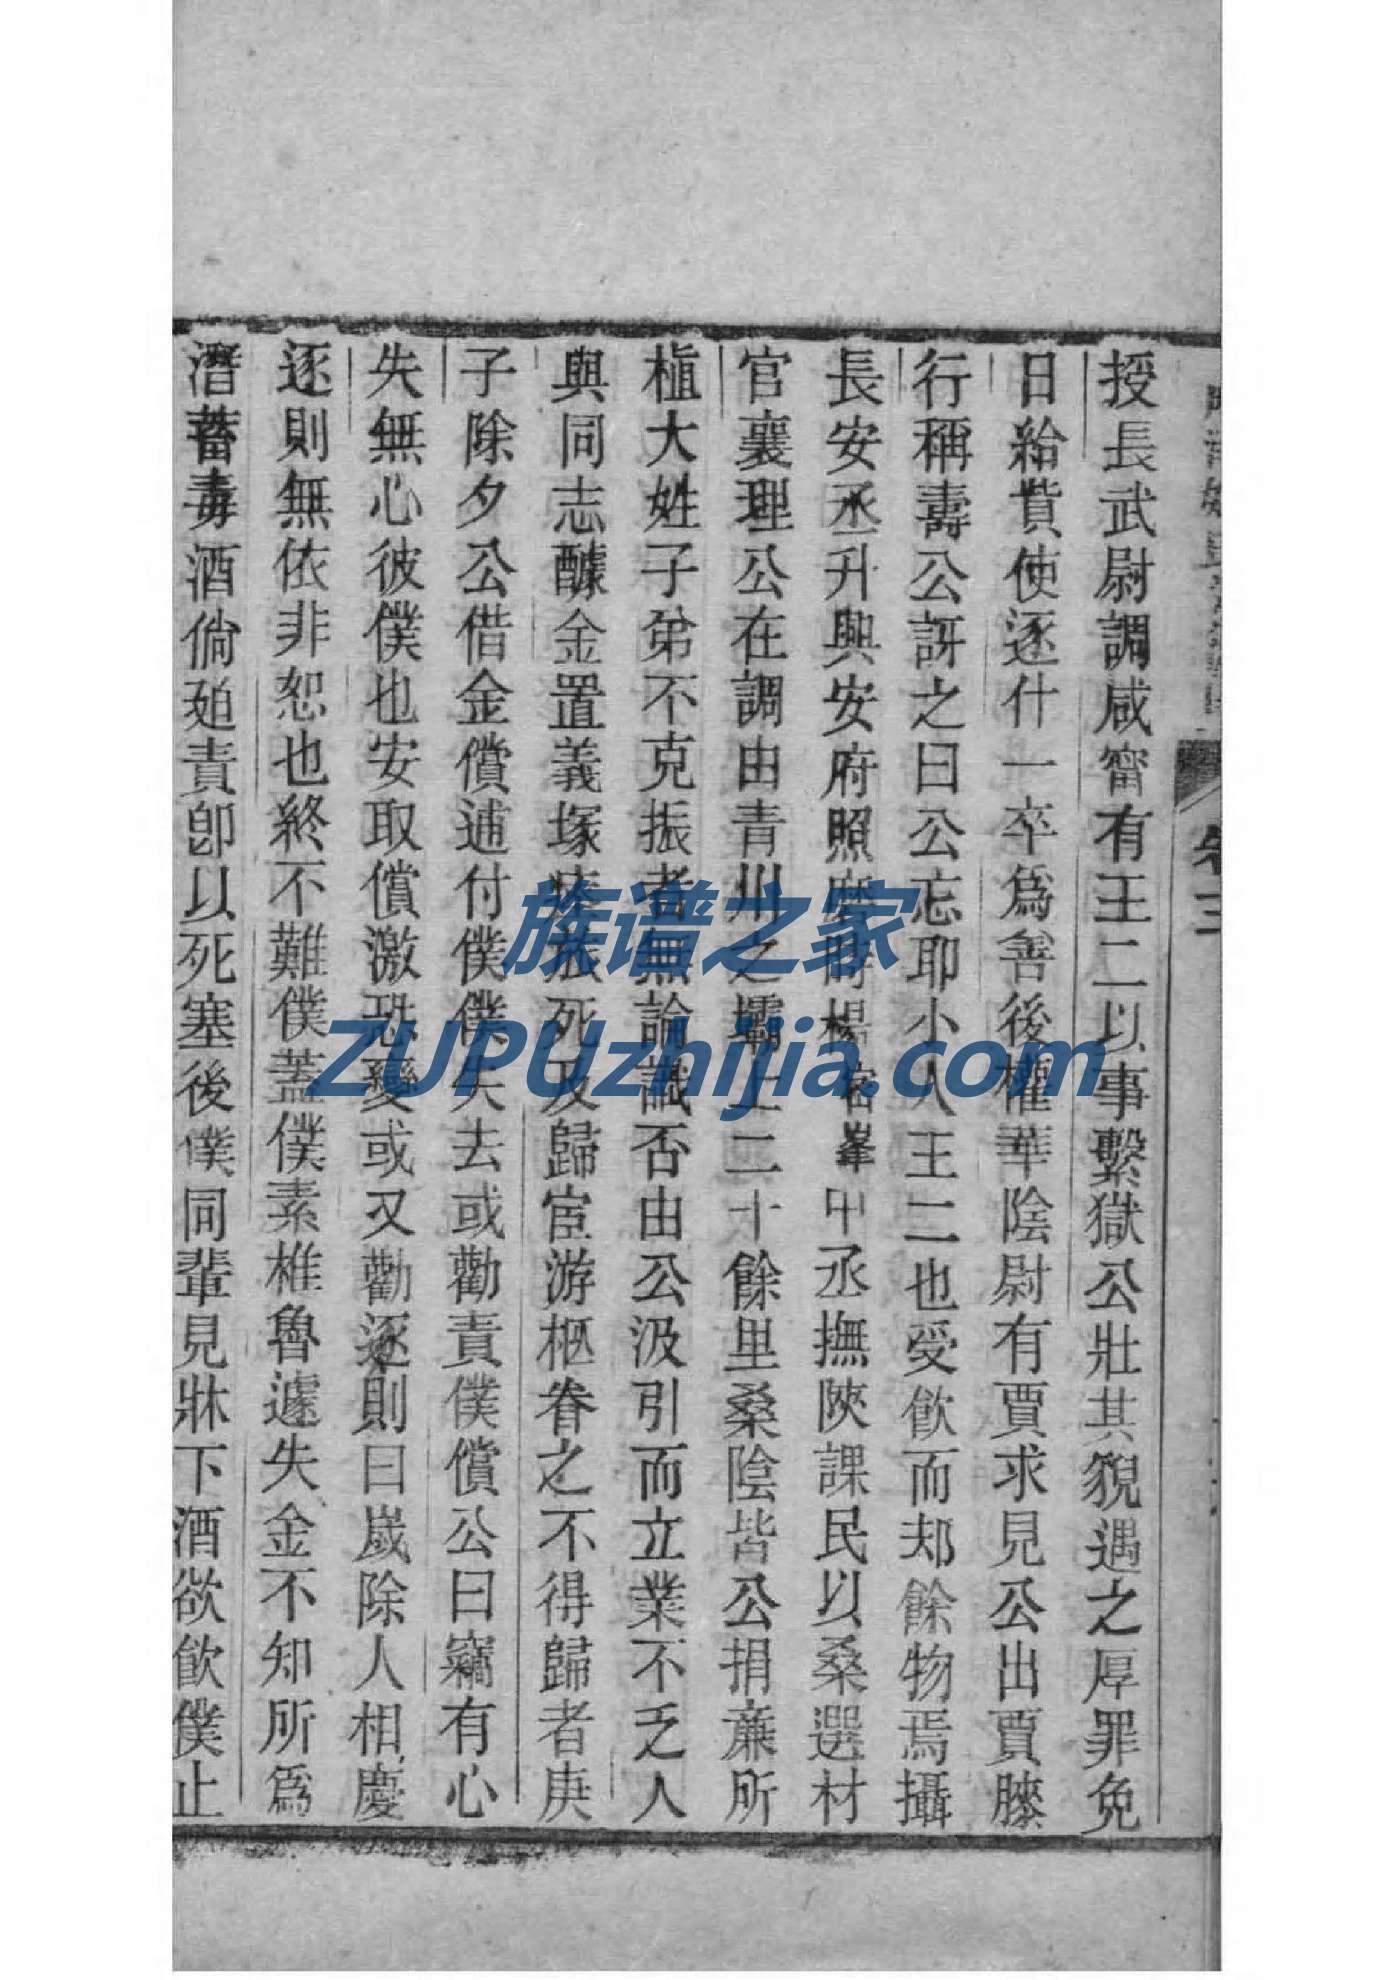 授長武尉調咸甯有王二以事繫獄公壯其貌遇之厚罪免
日給貲使逐什一卒為善後權華陰尉有賈求見公出賈膝
行稱壽公訝之曰公忘耶小人王二也受飲而却餘物焉攝
長安丞升興安府照磨時楊名峯中丞撫陝課民以桑選材
官襄理公在調由青川之壩上二十餘里桑陰皆公捐廉所
植大姓子弟不克振者無論識否由公汲引而立業不乏人
與同志醵金置義塚瘞旅死及歸宦游柩眷之不得歸者庚
子除夕公借金償逋付僕僕失去或勸責僕償公曰竊有心
失無心彼僕也安取償激恐變或又勸逐則曰歲除人相慶
逐則無依非恕也終不難僕蓋僕素椎魯遽失金不知所為
潛蓄毒酒倘廹責卽以死塞後僕同輩見牀下酒欲飲僕止
卷三
族谱之家
ZUPUzhijia.com